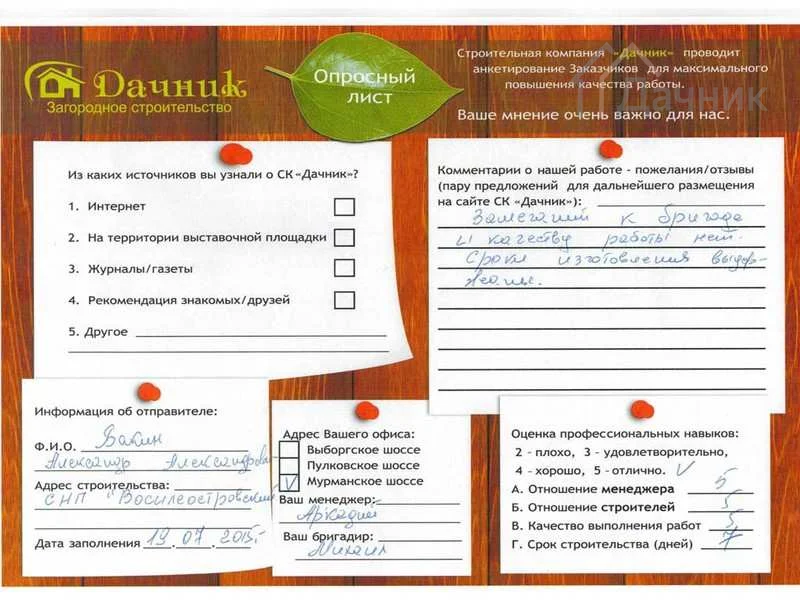 Дачник
Загородное строительство
Опросный
лист
Строительная компания «Дачник» проводит
анкетирование Заказчиков для максимального
повышения качества работы.
Дачник
Ваше мнение очень важно для нас.
Из каких источников вы узнали о СК «Дачник»?
1. Интернет
2. На территории выставочной площадки
3. Журналы/газеты
4. Рекомендация знакомых/друзей
5. Другое
Комментарии о нашей работе - пожелания/отзывы
(пару предложений для дальнейшего размещения
на сайте СК «Дачник»):
Замечаний к бригаде
и качеству работы нет.
Сроки изготовления выдер-
жаны.
Информация об отправителе:
Ф.И.О. Бакин
Александр Александрович
Адрес строительства:
СНП "Василеостровский
Дата заполнения 19.07.2015г
Адрес Вашего офиса:
Выборгское шоссе
Пулковское шоссе
V Мурманское шоссе
Ваш менеджер:
Аркадий
Ваш бригадир:
Михаил
Оценка профессиональных навыков:
2 - плохо, 3 - удовлетворительно,
4 - хорошо, 5 - отлично. V
А. Отношение менеджера 5
Б. Отношение строителей 5
В. Качество выполнения работ 5
Г. Срок строительства (дней) 7